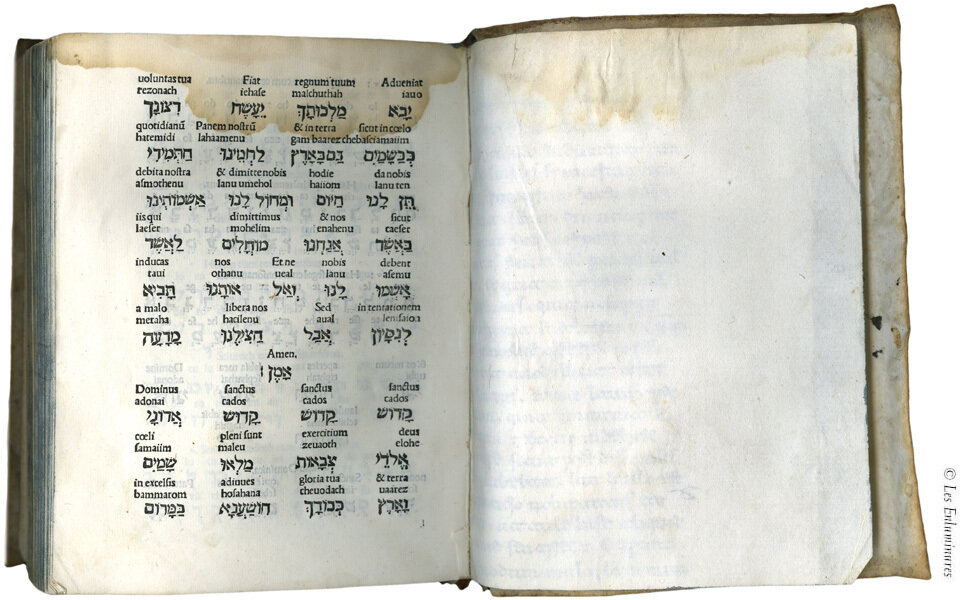 uoluntas tua Fiat regnum tuum Adueniat
rezonach iehase malchuthah iauo
יָבֹא מַלְכוּתָךְ יֵעָשֶׂה רִצוֹנָךְ
quotidianũ Panem nostrũ & in terra sicut in cœlo
hatemidi lahaamenu gam baarez chebasciamaiim
כְּבַשָּׁמַיִם גַם בָּאָרֶץ לַחְמֵינוּ הַתְּמִידִי
debita nostra & dimitte nobis hodie da nobis
asmothenu lanu umehol haiiom lanu ten
תֵּן לָנוּ הַיּוֹם וּמְחוֹל לָנוּ אַשְׁמוֹתֵינוּ
iis qui dimittimus & nos sicut
laeser mohelim enahenu caeser
כַּאֲשֶׁר אֲנַחְנוּ מוֹחֲלִים לַאֲשֶׁר
inducas nos Et ne nobis debent
taui othanu ueal lanu asemu
אָשְׁמוּ לָנוּ וְאַל אוֹתָנוּ תָּבִיא
a malo libera nos Sed in tentationem
meraha hacilenu aual lenisaion
לְנִסָּיוֹן אֲבָל הַצִּילֵנוּ מֵרָעָה
Amen.
אָמֵן:
Dominus sanctus sanctus sanctus
adonai cados cados cados
קָדוֹשׁ קָדוֹשׁ קָדוֹשׁ אֲדוֹנָי
cœli pleni sunt exercitium deus
samaiim maleu zeuaoth elohe
אֱלֹהֵי צְבָאוֹת מַלְאוּ שָׁמַיִם
in excelsis adiuues gloria tua & terra
bammarom hosahana cheuodach uaarez
וָאָרֶץ כְּבוֹדָךְ הוֹשַׁעְנָא בַּמָּרוֹם
© Les Enluminures